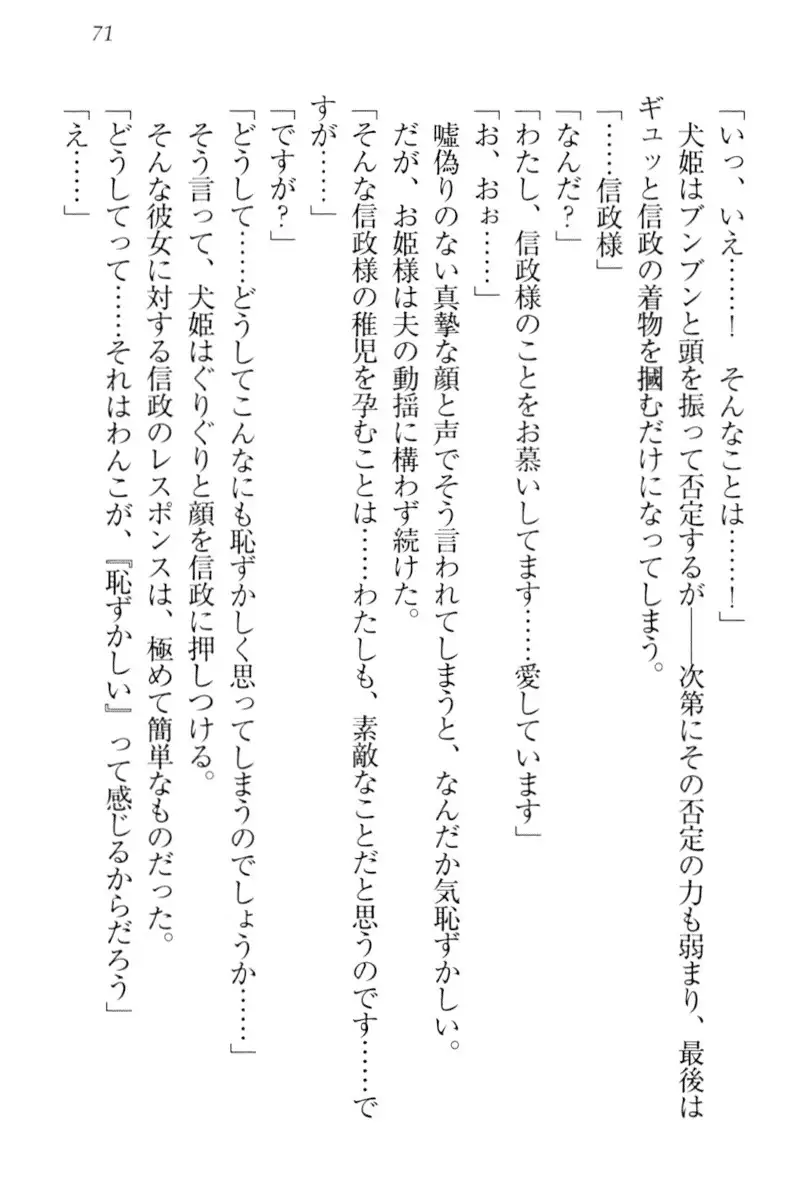 71
「いっ、いえ……！　そんなことは……！」
　犬姫はブンブンと頭を振って否定するが――次第にその否定の力も弱まり、最後は
ギュッと信政の着物を摑むだけになってしまう。
「……信政様」
「なんだ？」
「わたし、信政様のことをお慕いしてます……愛しています」
「お、おぉ……」
　嘘偽りのない真摯な顔と声でそう言われてしまうと、なんだか気恥ずかしい。
　だが、お姫様は夫の動揺に構わず続けた。
「そんな信政様の稚児を孕むことは……わたしも、素敵なことだと思うのです……で
すが……」
「ですが？」
「どうして……どうしてこんなにも恥ずかしく思ってしまうのでしょうか……」
　そう言って、犬姫はぐりぐりと顔を信政に押しつける。
　そんな彼女に対する信政のレスポンスは、極めて簡単なものだった。
「どうしてって……それはわんこが、『恥ずかしい』って感じるからだろう」
「え……」